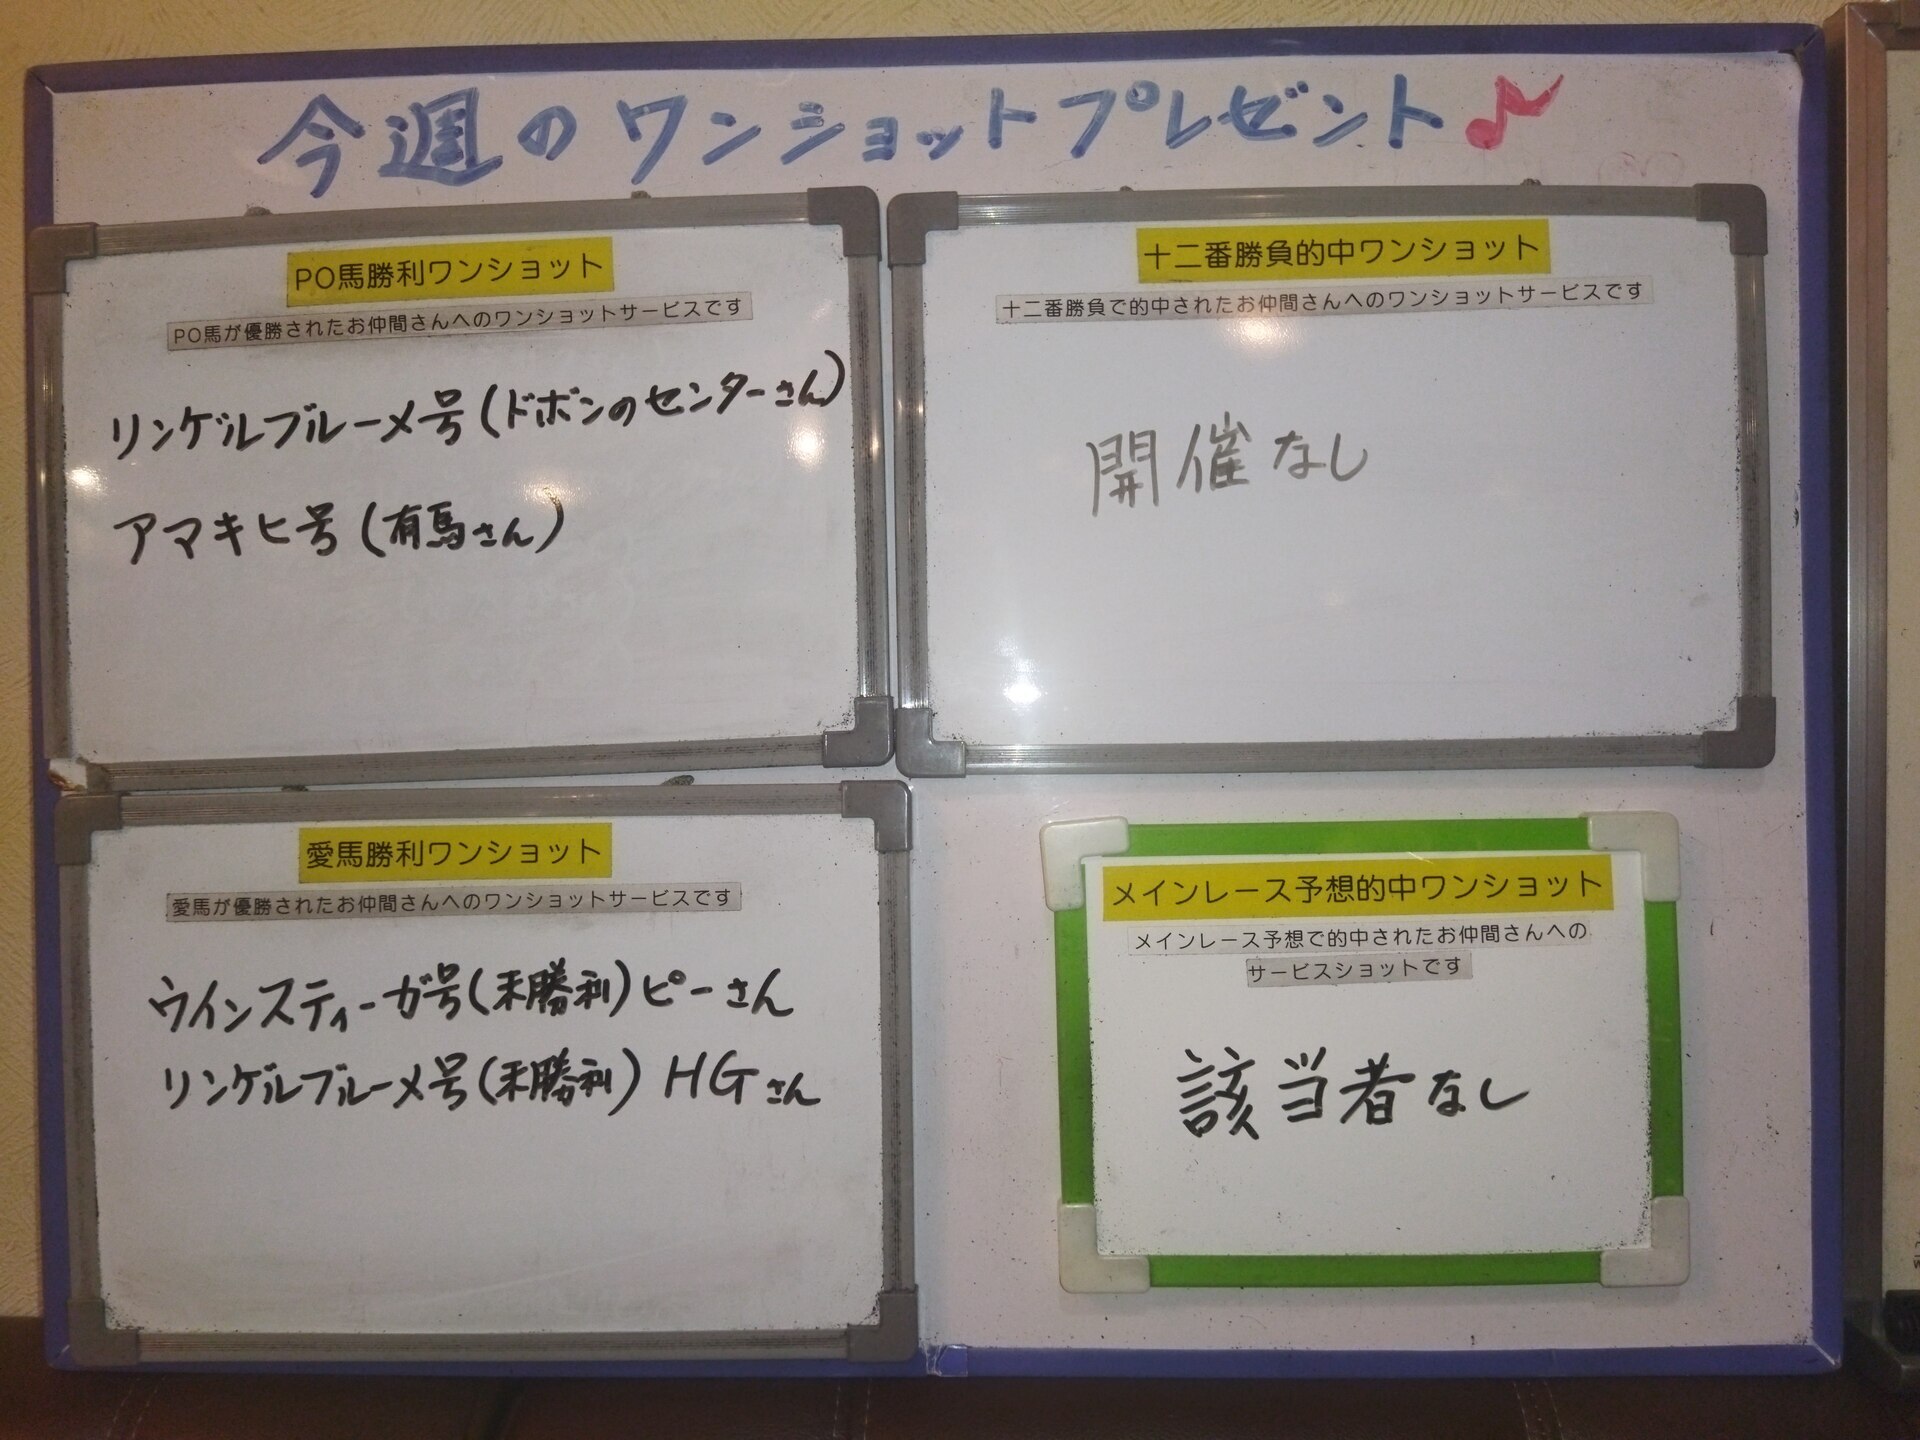 今週のワンショットプレゼント♪
PO馬勝利ワンショット
PO馬が優勝されたお仲間さんへのワンショットサービスです
リンゲルブルーメ号(ドボンのセンターさん)
アマキヒ号(有馬さん)
十二番勝負的中ワンショット
十二番勝負で的中されたお仲間さんへのワンショットサービスです
開催なし
愛馬勝利ワンショット
愛馬が優勝されたお仲間さんへのワンショットサービスです
ウインスティーガ号(未勝利)ピーさん
リンゲルブルーメ号(未勝利)HGさん
メインレース予想的中ワンショット
メインレース予想で的中されたお仲間さんへの
サービスショットです
該当者なし